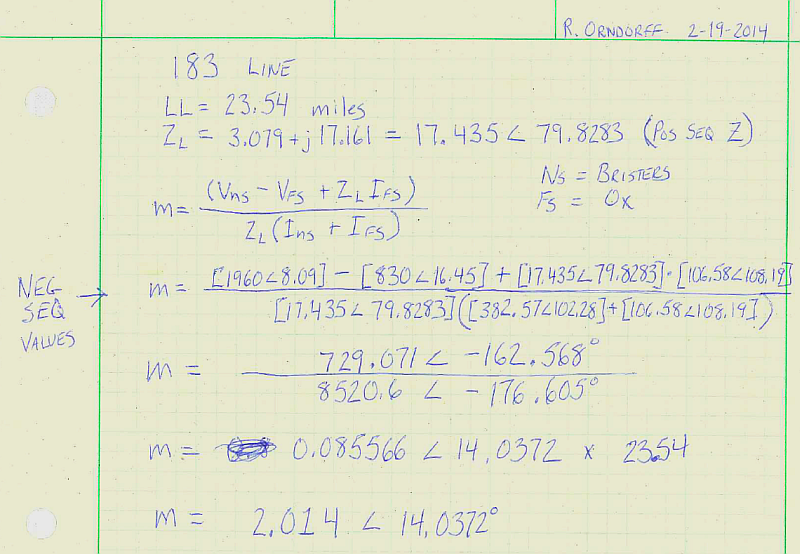 R. ORNDORFF 2-19-2014
183 LINE
LL = 23.54 miles
ZL = 3.079 + j 17.161 = 17.435 ∠ 79.8283 (POS SEQ Z)
NS = BRISTERS
FS = OX
m = (VNS - VFS + ZL IFS) / ZL (INS + IFS)
NEG SEQ VALUES → m = [1960∠8.09] - [830∠16.45] + [17.435∠79.8283] · [106.58∠108.19] / [17.435∠79.8283] ([382.57∠102.28] + [106.58∠108.19])
m = 729.071 ∠ -162.568° / 8520.6 ∠ -176.605°
m = 0.085566 ∠ 14.0372 x 23.54
m = 2.014 ∠ 14.0372°